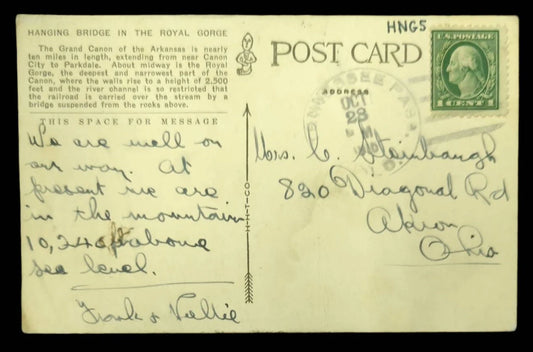 HNG5
HANGING BRIDGE IN THE ROYAL GORGE
The Grand Canon of the Arkansas is nearly
ten miles in length, extending from near Canon
City to Parkdale. About midway is the Royal
Gorge, the deepest and narrowest part of the
Canon, where the walls rise to a height of 2,500
feet and the river channel is so restricted that
the railroad is carried over the stream by a
bridge suspended from the rocks above.
THIS SPACE FOR MESSAGE
We are well on
our way. At
present we are
in the mountain
10,240 ft above
sea level.
Frank & Nellie
H-H-T-CO.
POST CARD
ADDRESS
U.S. POSTAGE
1 CENT 1
TENNESSEE PASS
OCT
23
Mrs. C. Steinbaugh
820 Diagonal Rd
Akron
Ohio